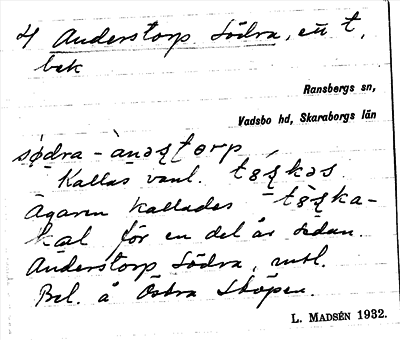 4 Anderstorp Södra, ett t,
bek
Ransbergs sn,
Vadsbo hd, Skaraborgs län
sǿdra - ànəʂtorp,
Kallas vanl.
Ägaren kallades
för en del år sedan.
Anderstorp Södra,
Bel. å Östra Sköpen.
L. MADSÉN 1932.